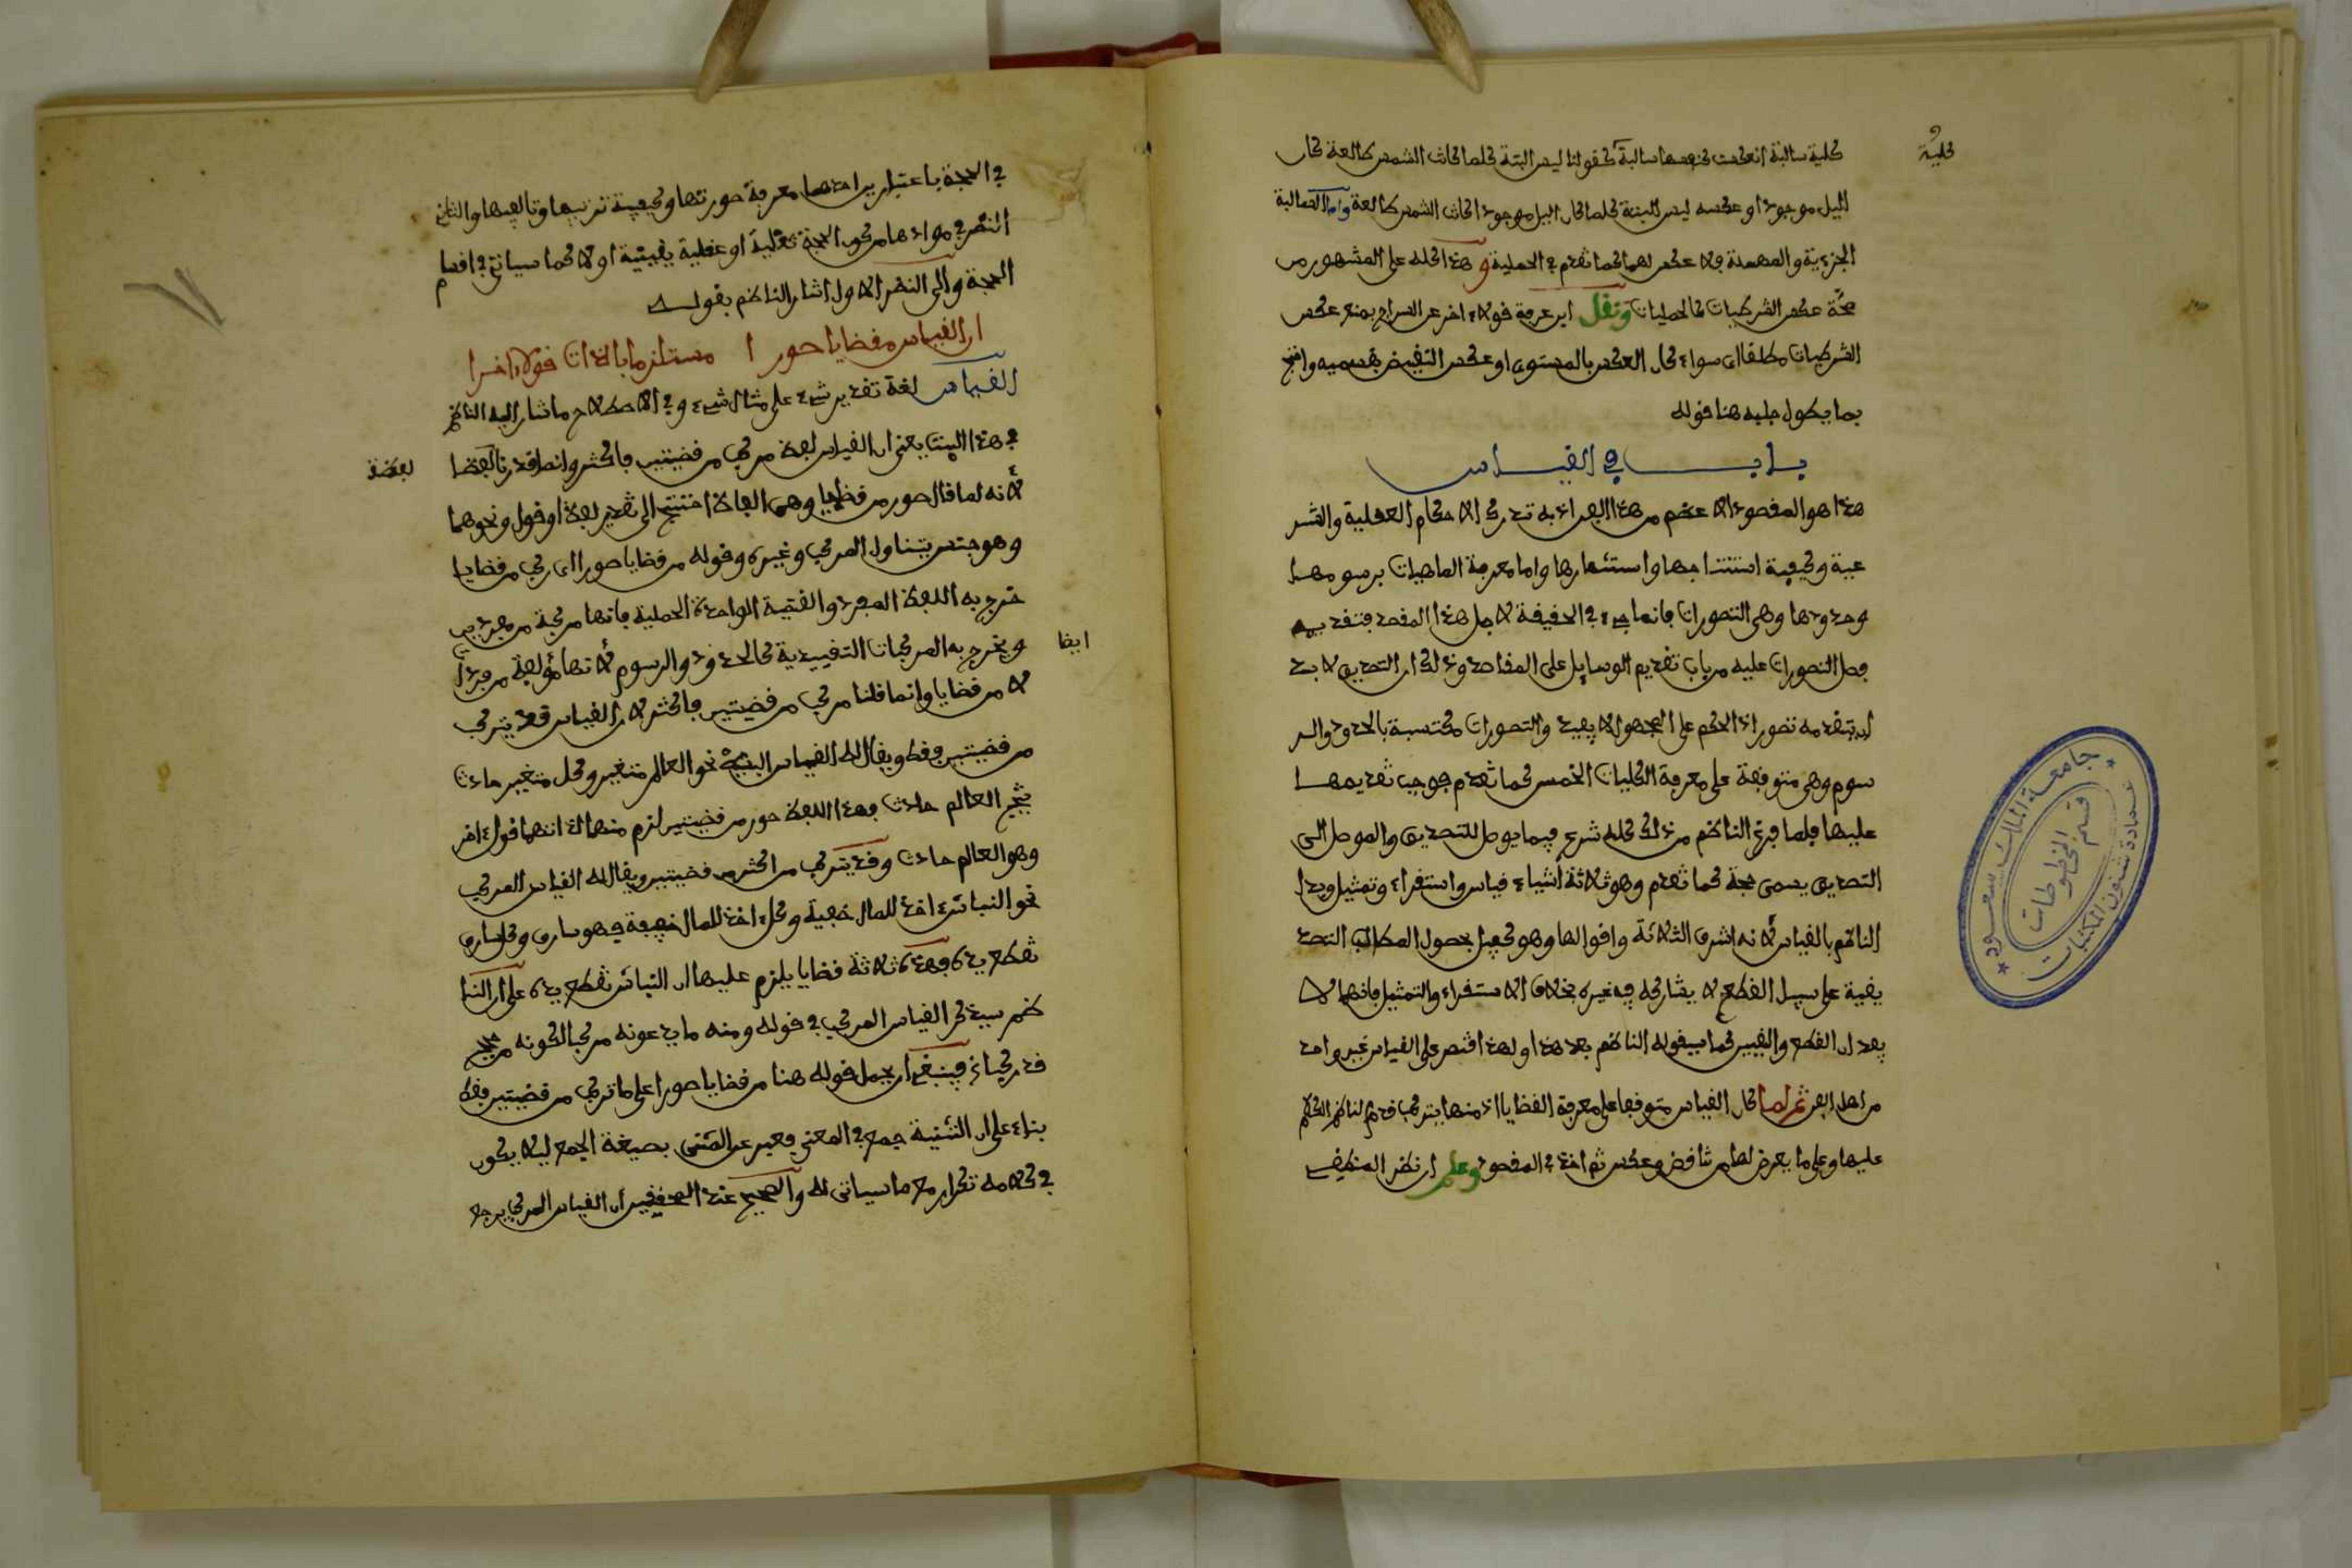 كلية سالبة انعكست كنفسها سالبة كقولنا ليس البتة كلما كانت الشمس طالعة كان
كلية
الليل موجودا وعكسه ليس البتة كلما كان اليل موجودا كانت الشمس طالعة واما السالبة
الجزءية والمهملة فلا عكس لهما كما تقدم في الحملية وهذا كله على المشهور من
صحة عكس الشرطيات كالحمليات ونقل ابن عرفة قولا ءاخر عن السراج بمنع عكس
الشرطيات مطلقا اي سواء كان العكس بالمستوى او عكس النقيض بقسميه واحتج
بما يطول جلبه هنا قوله
باب في القياس
هذا هو المقصود الاعظم من هذا الفن اذ به تدرك الاحكام العقلية والشر
عية وكيفية استنتاجها واستثمارها واما معرفة الماهيات برسومها
وحدودها وهي التصورات فانما هي في الحقيقة لاجل هذا المقصد فتقديم
فصل التصورات عليه من باب تقديم الوسايل على المقاصد وذلك ان التصديق لا بد
ان يتقدمه تصور اذ الحكم على المجهول لا يفيد والتصورات مكتسبة بالحدود والر
سوم وهي متوقفة على معرفة الكليات الخمس كما تقدم فوجب تقديمها
عليها فلما فرغ الناظم من ذلك كله شرع فيما يوصل للتصديق والموصل الى
التصديق يسمى حجة كما تقدم وهو ثلاثة أشياء قياس واستقراء وتمثيل وبدا
الناظم بالقياس لأنه اشرف الثلاثة واقواها وهو كفيل بحصول المطالب التصد
يقية على سبيل القطع لا يشاركه فيه غيره بخلاف الاستقراء والتمثيل فانهما لا
يفيدان القطع واليقين كما سيقوله الناظم بعد هذا ولهذا اقتصر على القياس غير واحد
من اهل الفن ثم لما كان القياس متوقفا على معرفة القضايا اذ منها يتركب قدم الناظم الكلام
عليها وعلى ما يعرض لها من تناقض وعكس ثم اخذ في المقصود وعلم ان نظر المنطقي
جامعة الملك سعود
عمادة شئون المكتبات
قسم المخطوطات
في الحجة باعتبارين احدهما معرفة صورتها وكيفية ترتيبها وتاليفها والثاني
النظر في موادها من كون الحجة نقلية او عقلية يقينية او لا كما سياتي في اقسام
الحجة والى النظر الاول اشار الناظم بقوله
ان القياس من قضايا صورا مستلزما بالذات قولا ءاخرا
القياس لغة تقدير شيء على مثال شيء وفي الاصطلاح ما اشار اليه الناظم
في هذا البيت يعني ان القياس لفظ مركب من قضيتين فاكثر وانما قدرنا لفظا
لفظة
لأنه لما قال صور من قضايا وهي الفاظ احتيج الى تقدير لفظ او قول ونحوهما
وهو جنس يتناول المركب وغيره وقوله من قضايا صورا اي ركب من قضايا
خرج به اللفظ المفرد والقضية الواحدة الحملية فانها مركبة من مفردين
ويخرج به المركبات التقييدية كالحدود والرسوم لأنها مؤلفة من مفردات
ايضا
لا من قضايا وانما قلنا مركب من قضيتين فاكثر لان القياس قد يتركب
من قضيتين فقط ويقال له القياس البسيط نحو العالم متغير وكل متغير حادث
ينتج العالم حادث فهذا اللفظ صور من قضيتين لزم منهما لذاتهما قول ءاخر
وهو العالم حادث وقد يتركب من اكثر من قضيتين ويقال له القياس المركب
نحو النباش ءاخذ للمال خفية وكل ءاخذ للمال خفية فهو سارق وكل سارق
تقطع يده فهذه ثلاثة قضايا يلزم عليها ان النباش تقطع يده على ان النا
ظم سيذكر القياس المركب في قوله ومنه ما يدعونه مركبا لكونه من حجج
قد ركبا فينبغي ان يحمل قوله هنا من قضايا صورا على ما تركب من قضيتين فقط
بناء على ان التثنية جمع في المعنى فعبر عن المثنى بصيغة الجمع ليلا يكون
في كلامه تكرار مع ما سياتي له والصحيح عند المحققين ان القياس المركب يرجع